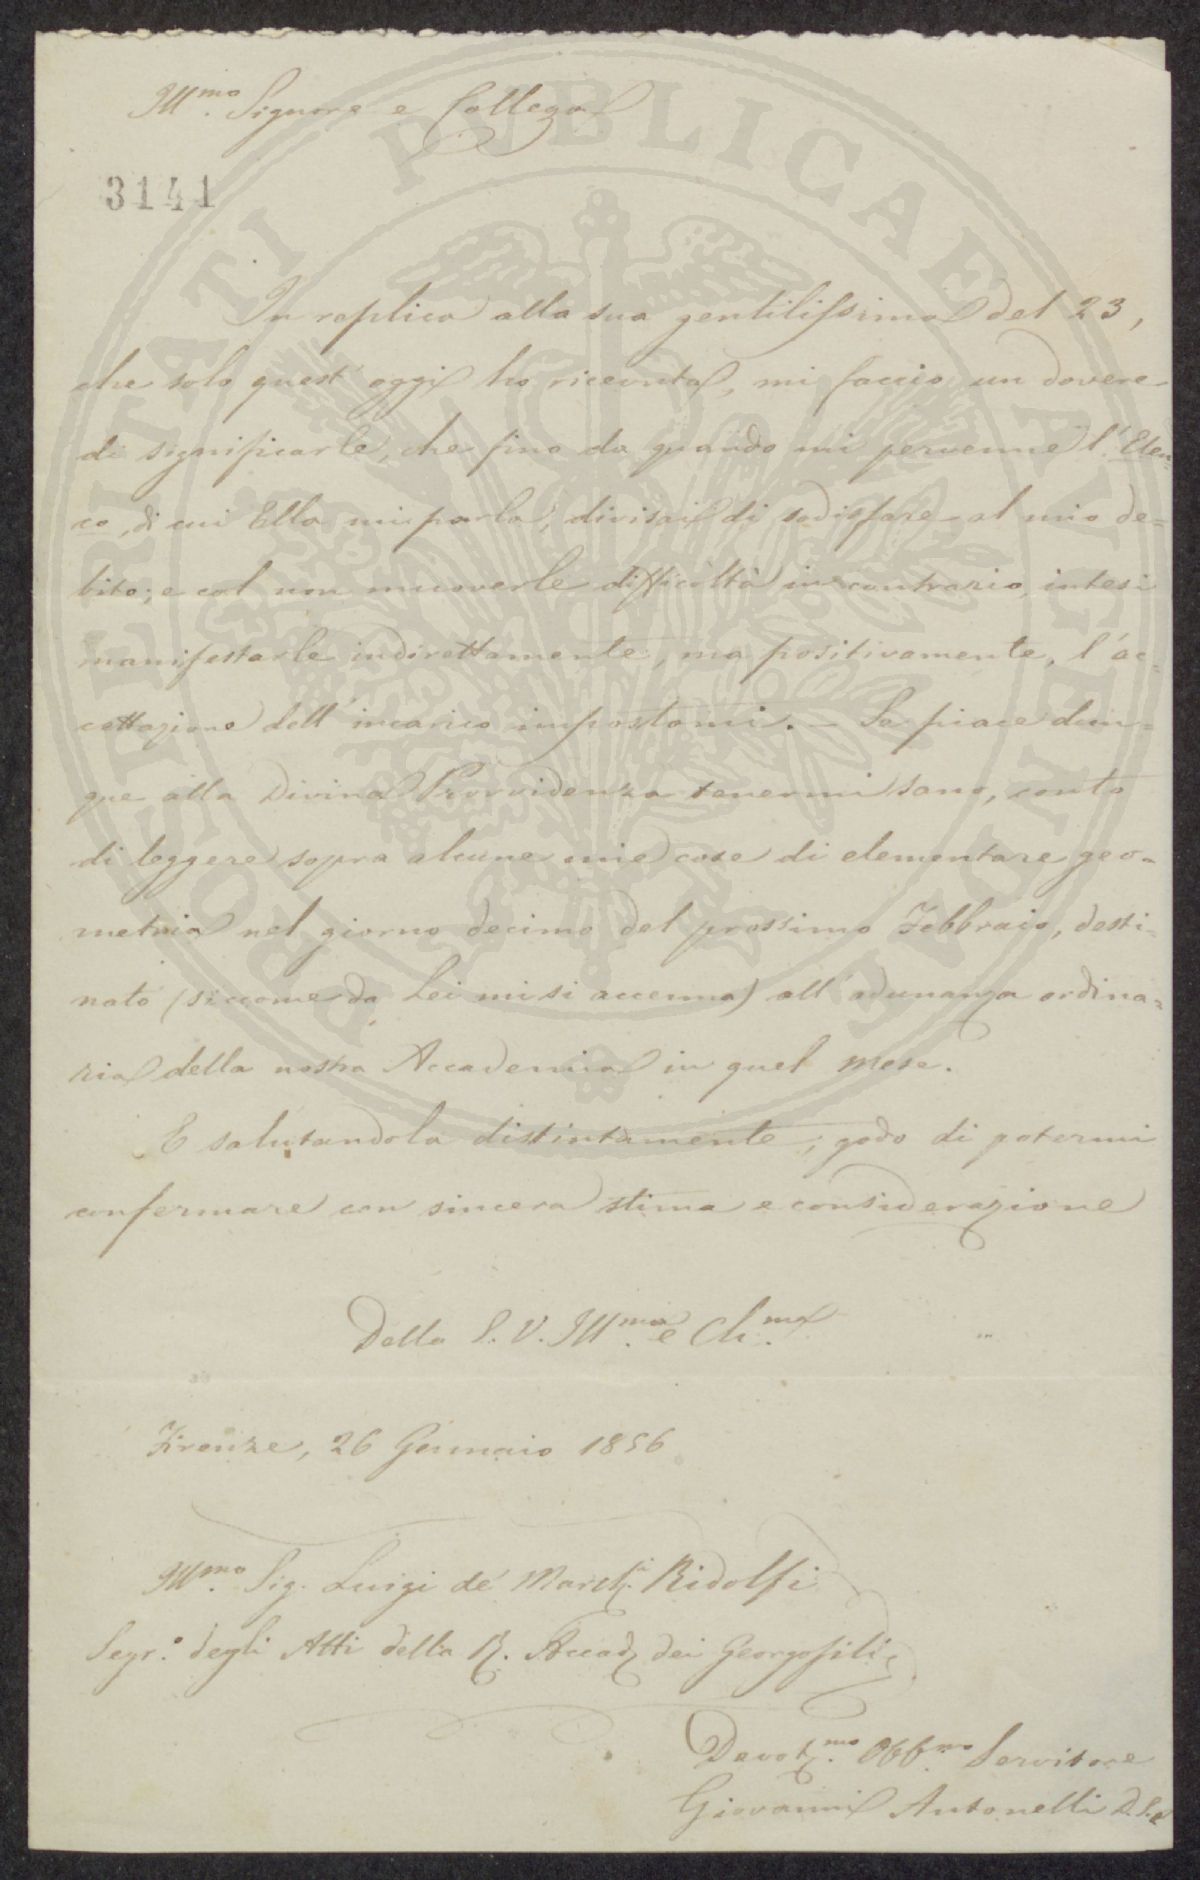 Ill.mo Signore e Collega
3141
In replica alla sua gentilissima del 23,
che solo quest'oggi ho ricevuta, mi faccio un dovere
di significarle, che fino da quando mi pervenne l'Elen=
co, di cui Ella mi parla, divisai di sodisfare al mio de=
bito; e col non muoverle difficoltà in contrario, intesi
manifestarle indirettamente, ma positivamente, l'ac=
cettazione dell'incarico impostomi. — Se piace dun=
que alla Divina Provvidenza tenermi sano, conto
di leggere sopra alcune mie cose di elementare geo=
metria nel giorno decimo del prossimo Febbraio, desti=
nato (siccome da Lei mi si accenna) all'adunanza ordina=
ria della nostra Accademia in quel mese.
E salutandola distintamente, godo di potermi
confermare con sincera stima e considerazione
Della S. V. Ill.ma e Ch.ma
Firenze, 26 Gennaio 1856
Ill.mo Sig. Luigi de' March.i Ridolfi
Segr.o degli Atti della R. Accad. dei Georgofili
Devot.mo Obb.mo Servitore
Giovanni Antonelli D. S. P.
PROSPERITATI PUBLICAE AUGENDAE